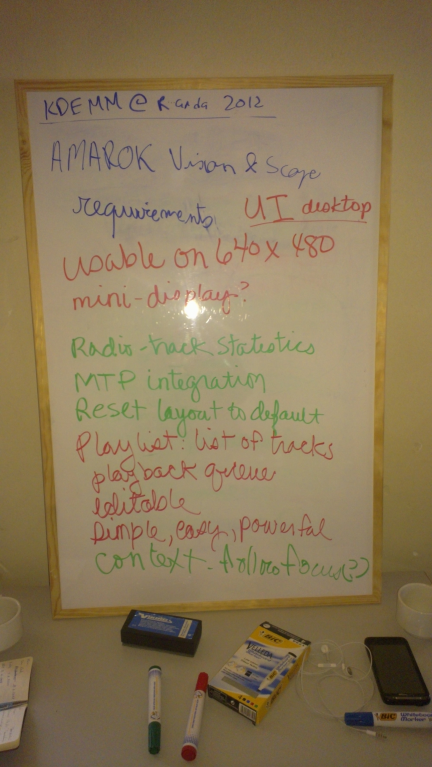 KDE MM @ Randa 2012
AMAROK Vision & Scope
requirements UI desktop
usable on 640 x 480
mini-display?
Radio-track statistics
MTP integration
Reset layout to default
Playlist: list of tracks
playback queue
editable
Simple, easy, powerful
context - follows focus(?)
BIC
BIC